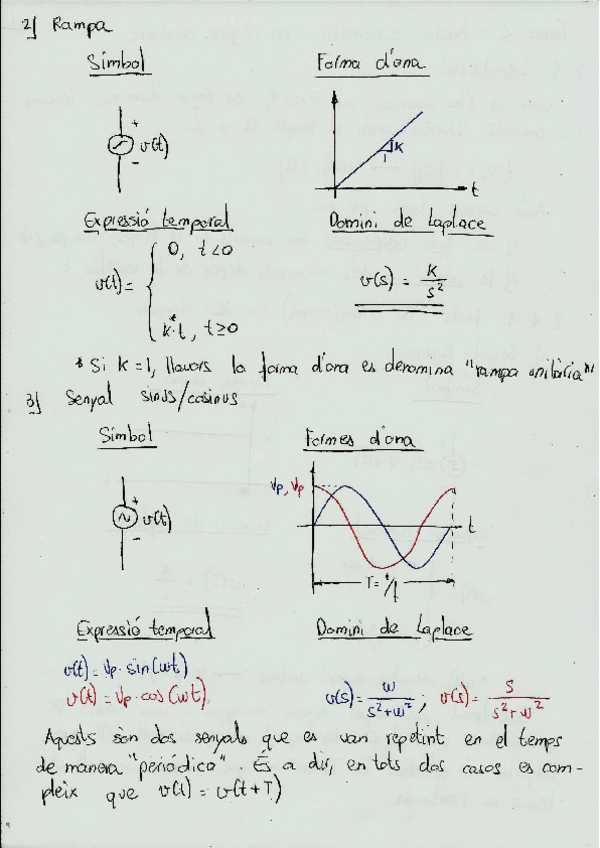 2) Rampa
Símbol
Forma d'ona
+
v(t)
-
k
1
t
Expressió temporal
Domini de Laplace
v(t) = { 0, t<0
k*·t, t≥0
v(s) = k/s²
* Si k = 1, llavors la forma d'ona es denomina "rampa unitària"
3) Senyal sinus/cosinus
Símbol
Formes d'ona
+
v(t)
-
Vp, Vp
t
T = 1/f
Expressió temporal
Domini de Laplace
v(t) = Vp · sin(wt)
v(t) = Vp · cos(wt)
v(s) = w/(s²+w²) ; v(s) = s/(s²+w²)
Aquests son dos senyals que es van repetint en el temps
de manera "periòdica". És a dir, en tots dos casos es com-
pleix que v(t) = v(t+T)